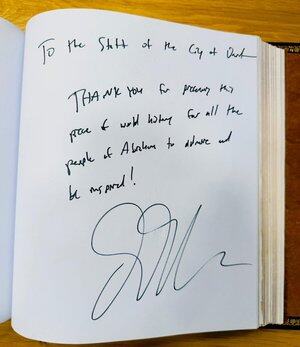 To the Staff of the City of
THANK YOU for preserving this
piece of world history for all the
people of to admire and
be inspired!